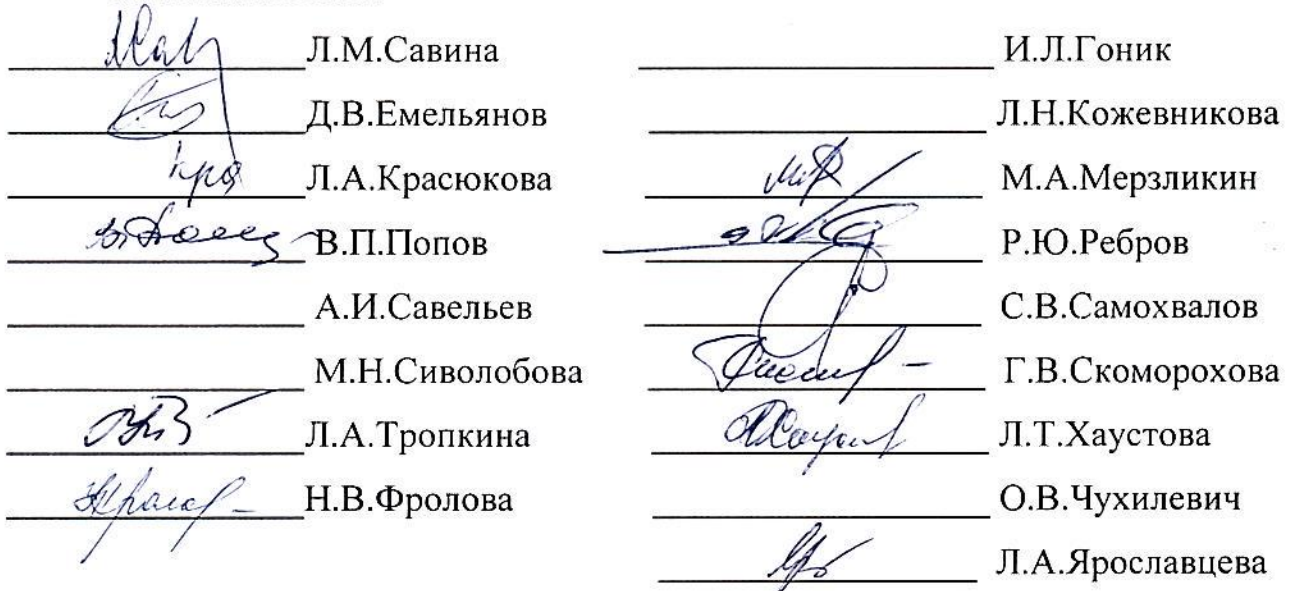 Л.М.Савина
Д.В.Емельянов
Л.А.Красюкова
В.П.Попов
А.И.Савельев
М.Н.Сиволобова
Л.А.Тропкина
Н.В.Фролова
И.Л.Гоник
Л.Н.Кожевникова
М.А.Мерзликин
Р.Ю.Ребров
С.В.Самохвалов
Г.В.Скоморохова
Л.Т.Хаустова
О.В.Чухилевич
Л.А.Ярославцева